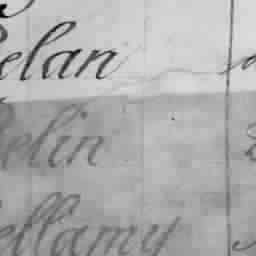 Belan
Belin
Bellamy